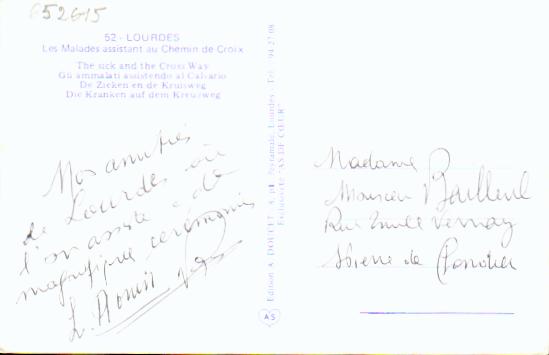 652615
52 - LOURDES
Les Malades assistant au Chemin de Croix
The sick and the Cross Way
Gli ammalati assistendo al Calvario
De Zieken en de Kruisweg
Die Kranken auf dem Kreuzweg
Mes amitiés
de Lourdes où
l'on assiste à de
magnifiques cérémonies
Edition A. DOUCET Lourdes - Tél. 94 27 08
Exclusivité "AS DE CŒUR"
AS
Madame
Monsieur Bailleul
Rue Emile Vernay